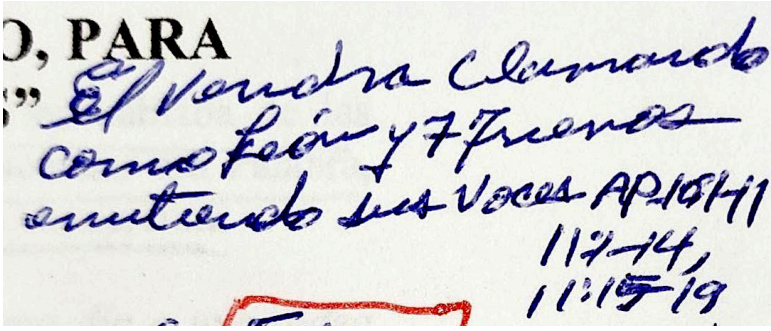 O, PARA
S”
El vendra clamando
como León y 7 Truenos
emitiendo sus voces AP. 10:1-11
11:7-14,
11:15-19